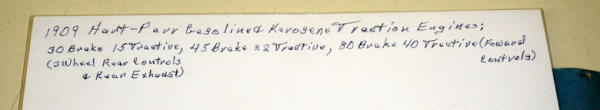 1909 Hart-Parr Gasoline & Kerosene Traction Engines;
30 Brake 15 Tractive, 45 Brake 22 Tractive, 80 Brake 40 Tractive (Foward
(3 Wheel Rear Controls Controls)
& Rear Exhaust)